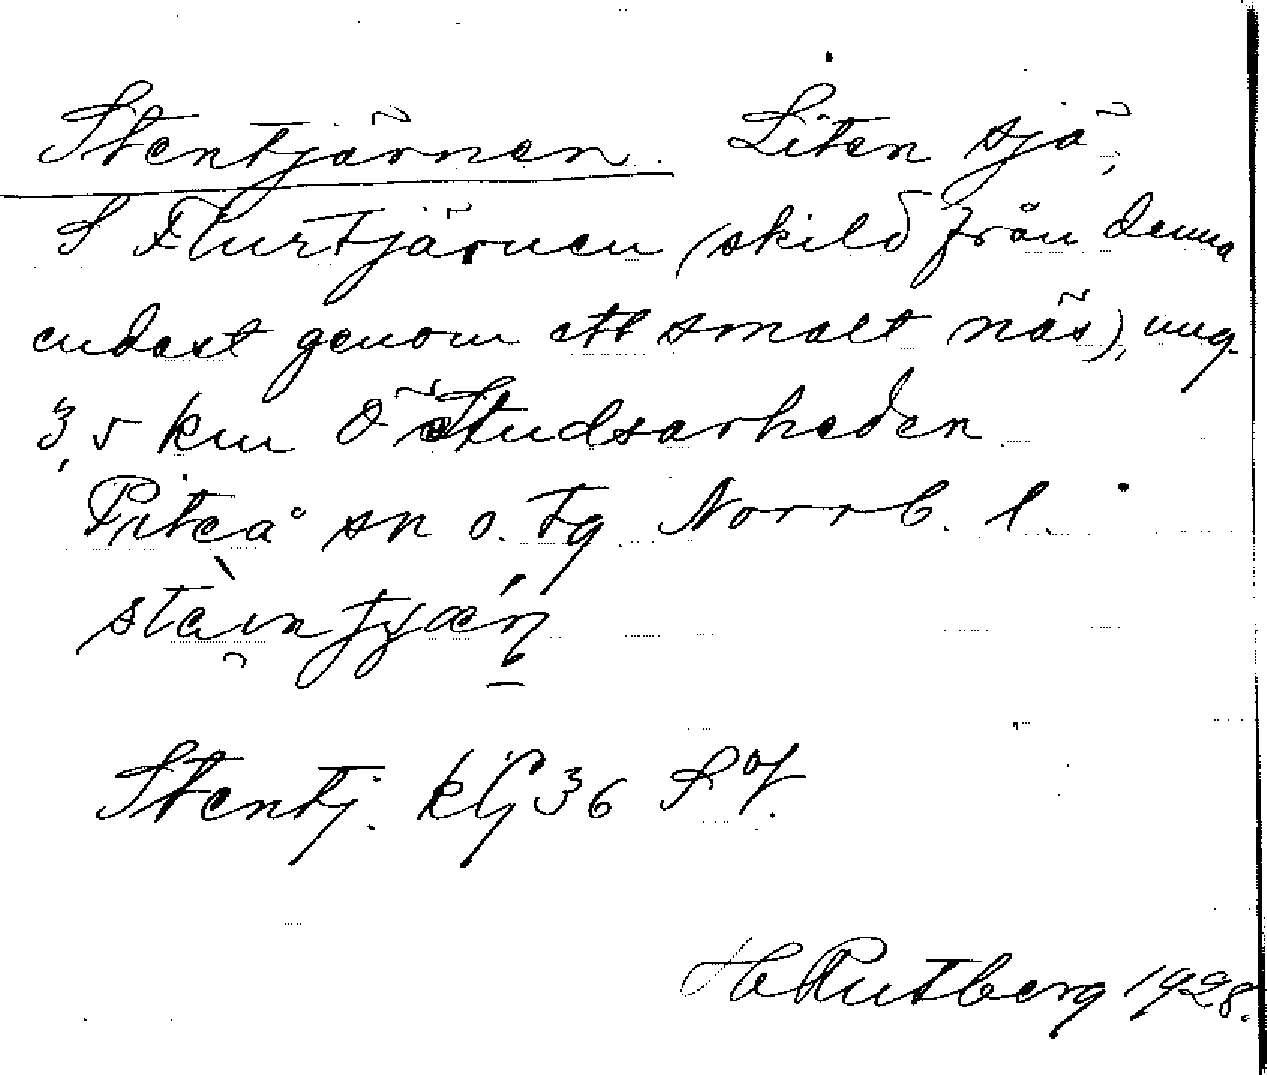 Stentjärnen. Liten sjö,
S Flurtjärnen (skild från denna
endast genom ett smalt näs), ung.
3,5 km Ö Studsarheden
Piteå sn o. tg Norrb. l.
Stentj. kG 36 SV.
H. Rutberg 1928.